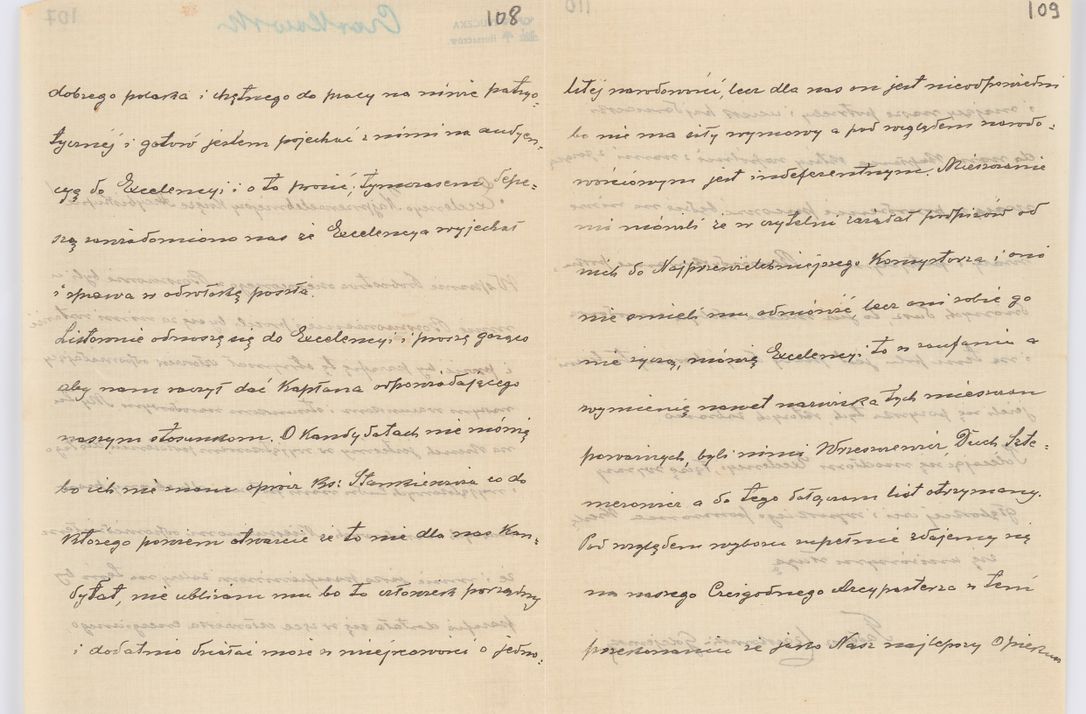 108
dobrego polaka i chętnego do pracy na niwie patryo-
tycznéj i gotów jestem pojechać z nimi na audyen-
cyą do Excelencyi i o to prosić, tymczasem depe-
szą zawiadomiono nas że Excelencya wyjechał
i sprawa w odwłokę poszła.
Listownie odnoszę się do Excelencyi i proszę gorąco
aby nam raczył dać Kapłana odpowiadającego
naszym stosunkom. O Kandydatach nie mówię
bo ich nie mam oprócz Ks: Stankiewicza co do
Którego powiem otwarcie że to nie dla nas Kan-
dydat, nie ubliżam mu bo to człowiek porządny
i dodatnio działać może w miejscowości o jedno-
109
litéj narodowości, lecz dla nas on jest nieodpowiedni
bo nie ma siły wymowy a pod względem narodo-
wościowym jest indeferentnym. Mieszczanie
mi mówili że w czytelni zażądał podpisów od
nich do Najprzewielebniejszego Konsystorza i oni
nie śmieli mu odmówić lecz oni sobie go
nie życzą, mówię Excelencyi to w zaufaniu a
wymienię nawet nazwiska tych mieszczan
poważnych, byli nimi Wrzeszcewicz, Duch, Szte-
merowicz a do tego dołączam list otrzymany.
Pod względem wyboru zupełnie zdajemy się
na naszego Czcigodnego Arcypasterza w tem
przekonaniu że jako Nasz najlepszy Opiekun